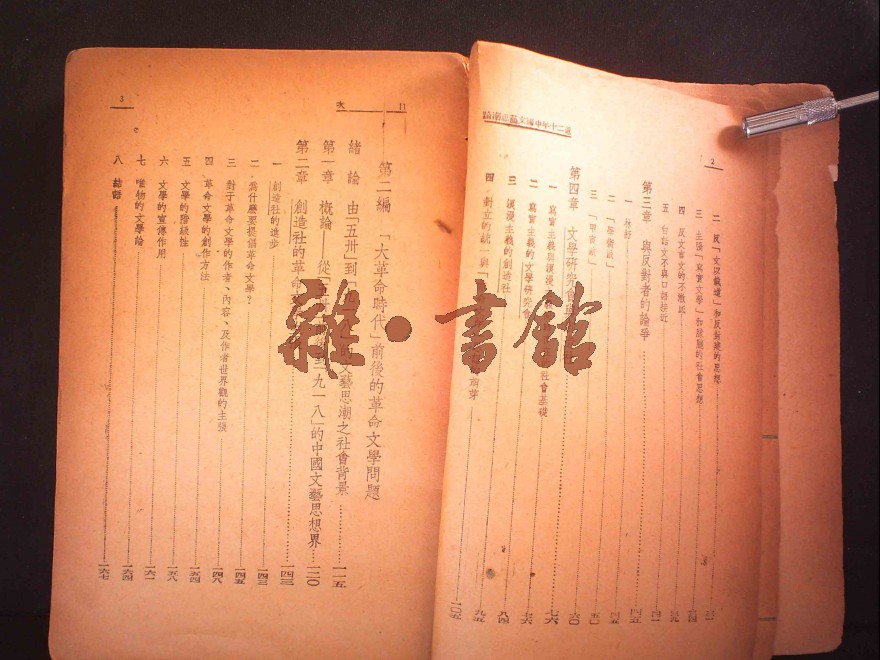 近二十年中國文藝思潮論
2
二 反「文以載道」和反封建的思想
三 主張「寫實文學」和
的社會思想
四 反文言文的不敷
五 白話文不與口語接近
第三章 與反對者的論爭 四五
一 林紓 四五
二 「學衡派」
三 「甲寅派」 五〇
第四章 文學研究會與 六〇
一 寫實主義與浪漫 社會基礎 七六
二 寫實主義的文學研究會 七六
三 浪漫主義的創造社 八四
四 對立的統一與「 萌芽 九五
一〇五
目次
3
第二編 「大革命時代」前後的革命文學問題
緒論 由「五卅」到「 的文藝思潮之社會背景 一一五
第一章 概論——從「五卅」 九一八」的中國文藝思想界 一二〇
第二章 創造社的革命 一四三
一 創造社的進步 一四三
二 為什麼要提倡革命文學？ 一四五
三 對于革命文學的作者、內容、及作者世界觀的主張 一四八
四 革命文學的創作方法 一五四
五 文學的階級性 一五八
六 文學的宣傳作用 一六一
七 唯物的文學論 一六四
八 結語 一六七
雜·書館